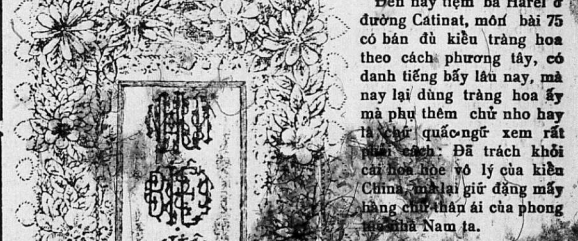 Đến nay tiệm bà Harel ở
đường Catinat, môn bài 75
có bán đủ kiểu tràng hoa
theo cách phương tây, có
danh tiếng bấy lâu nay, mà
nay lại dùng tràng hoa ấy
mà phụ thêm chử nho hay
là chử quấc-ngữ xem rất
phải cách. Đã trách khỏi
cái hoa hòe vô lý của kiểu
China, mà lại giữ đặng mấy
hàng chữ thân ái của phong
nhà Nam ta.